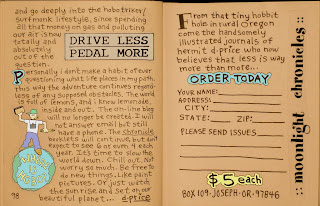 and go deeply into the hobo trixer/
surf monk lifestyle, since spending
all that money on gas and polluting
our air is now
totally and
absolutely
out of the
question.
DRIVE LESS
PEDAL MORE
Personally I dont make a habit of ever
questioning what life places in my path,
this way the adventure continues regard-
less of any supposed obstacles. The world
is full of lemons, and I know lemonade,
inside and out. The on-line blog
will no longer be created. I will
not answer email but still
have a phone. The chronicle
booklets will continue, but dont
expect to see 6 or even 4 each
year. Its time to slow the
world down. Chill out, don't
worry so much. Be free to
do new things. Like paint
pictures. Or just watch
the sunrise and set on our
beautiful planet... d.price
WHAT IS NEXT?
98
From that tiny hobbit
hole in rural Oregon
come the handsomely
illustrated journals of
hermit d-price who now
believes that less is way
more than more...
ORDER TODAY
YOUR NAME:
ADDRESS:
CITY:
STATE: ZIP:
PLEASE SEND ISSUES
$5 each
BOX 109. JOSEPH-OR-97846
:: moonlight chronicles ::